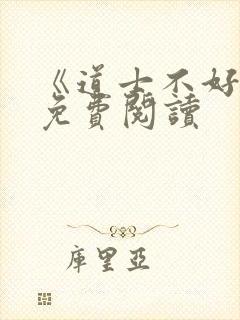 《道士不好
免費閱讀
庫里亞